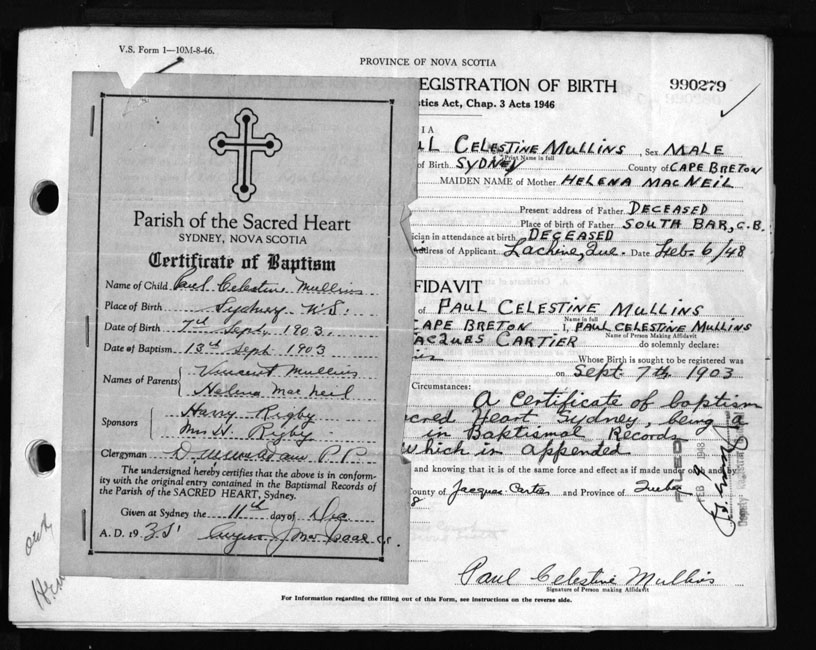 V.S. Form 1—10M-8-46.
PROVINCE OF NOVA SCOTIA
REGISTRATION OF BIRTH 990279
tics Act, Chap. 3 Acts 1946
Parish of the Sacred Heart
SYDNEY, NOVA SCOTIA
Certificate of Baptism
Name of Child Paul Celestine Mullins
Place of Birth Sydney N.S.
Date of Birth 7th Sept. 1903.
Date of Baptism 13th Sept 1903
Names of Parents Vincent Mullins
Helena MacNeil
Sponsors Harry Rigby
Mrs H. Rigby
Clergyman P.P.
The undersigned hereby certifies that the above is in conform-
ity with the original entry contained in the Baptismal Records of
the Parish of the SACRED HEART, Sydney.
Given at Sydney the 11th day of Dec
A. D. 19 35
IA
UL CELESTINE MULLINS, Sex MALE
Print Name in full
of Birth SYDNEY County of CAPE BRETON
MAIDEN NAME of Mother HELENA MACNEIL
Present address of Father DECEASED
Place of birth of Father SOUTH BAR, C.B.
ician in attendance at birth DECEASED
ddress of Applicant Lachine, Que. Date Feb. 6/48
FIDAVIT
of PAUL CELESTINE MULLINS
Name in full
CAPE BRETON I, PAUL CELESTINE MULLINS
Name of Person Making Affidavit
ACQUES CARTIER do solemnly declare:
Whose Birth is sought to be registered was
on Sept. 7th 1903
Circumstances:
A certificate of baptism
cred Heart Sydney, being a
in Baptismal Records
which in appended
and knowing that it is of the same force and effect as if made under oath and by
County of Jacques Cartier and Province of Quebec
FILED
FEB 1948
Paul Celestine Mullins
Signature of Person making Affidavit
For Information regarding the filling out of this Form, see instructions on the reverse side.